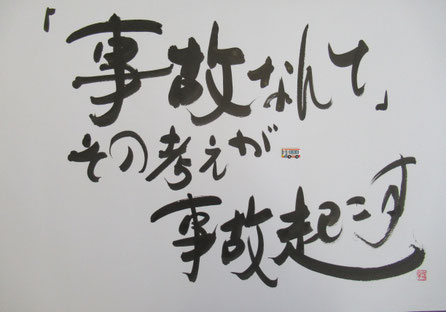 「事故なんて」
その考えが
事故起こす